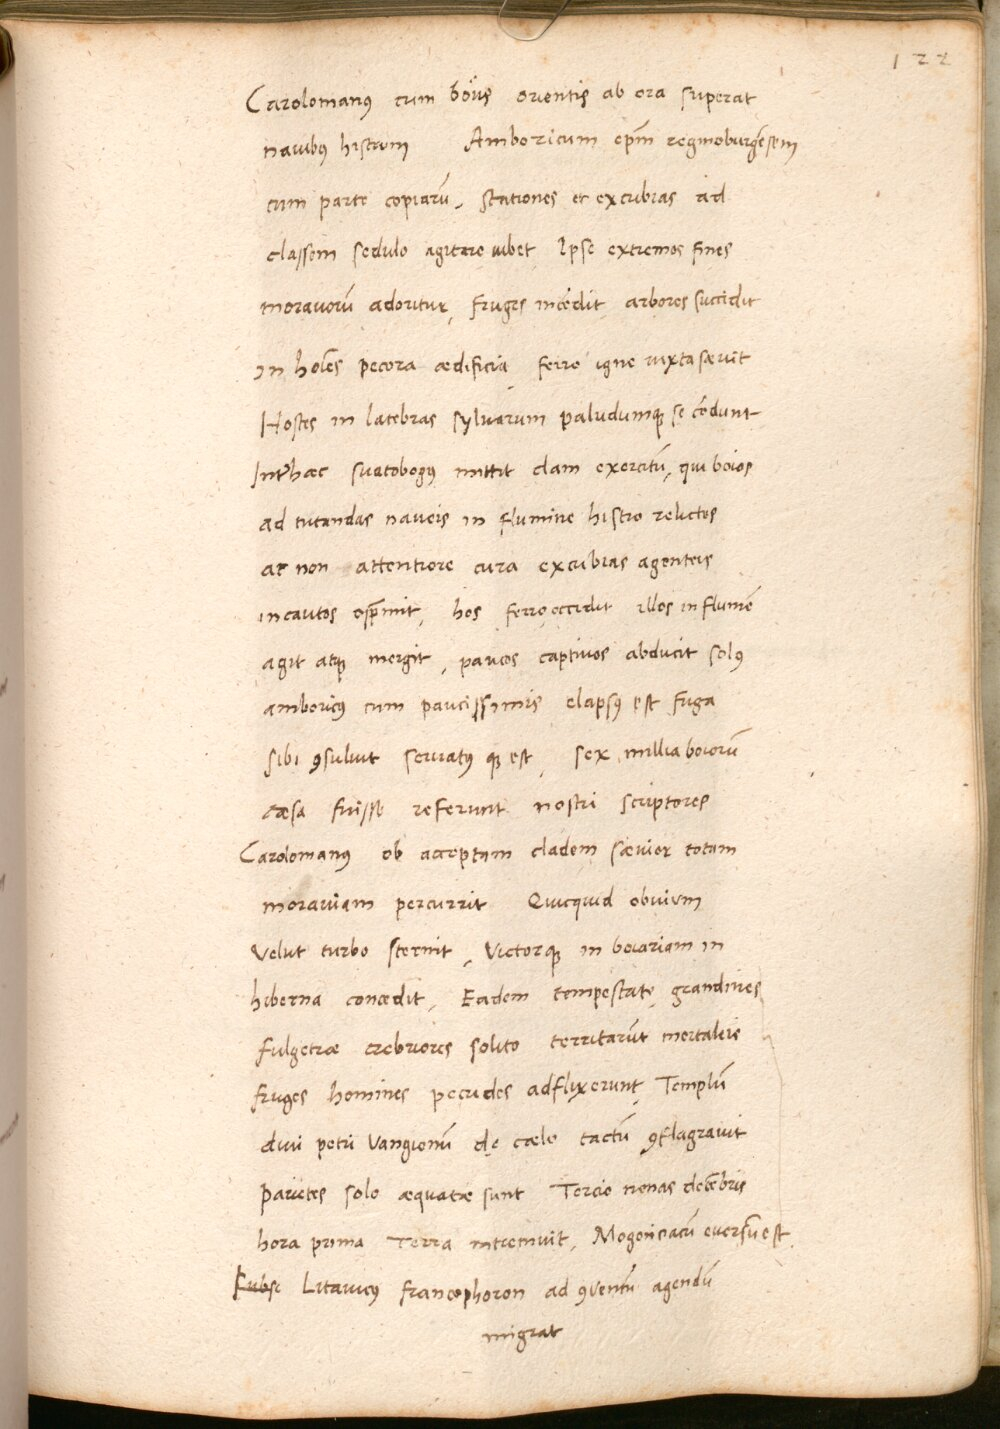 122
Carolomanꝰ cum boiis orientis ab ora superat
nauibꝰ histrum Amboricum ep̄m reginoburgēsem
cum parte copiarū, stationes et excubias ad
classem sedulo agitare iubet Ipse extremos fines
morauorū adoritur, fruges incēdit arbores succidit
in hoīes pecora ædificia ferro igne iuxta sæuit
Hostes in latebras syluarum paludumqꝫ se cōdunt
Inter hæc suatobogꝰ mittit clam exercitū, qui boios
ad tutandas naueis in flumine histro relictos
ac non attentiore cura excubias agenteis
incautos opp̄mit, hos ferro occidit illos in flumē
agit atqꝫ mergit, paucos captiuos abducit solꝰ
amboricꝰ cum paucissimis elapsꝰ est fuga
sibi ꝯsuluit seruatꝰ qꝫ est, sex millia boiorū
cæsa fuisse referunt nostri scriptores
Carolomanꝰ ob acceptam cladem sæuior totam
morauiam percurrit Quicquid obuium
velut turbo sternit, Victorqꝫ in boiariam in
hiberna concedit, Eadem tempestate, grandines
fulgetræ crebriores solito territarūt mortaleis
fruges homines pecudes adflixerunt, Templū
diui petri Vangionū de cælo tactū ꝯflagrauit
parietes solo æquatæ sunt Tercio nonas decēbris
hora prima Terra intremuit, Mogonciacū euersū est
Litauicꝰ francophoron ad ꝯuentū agendū
migrat